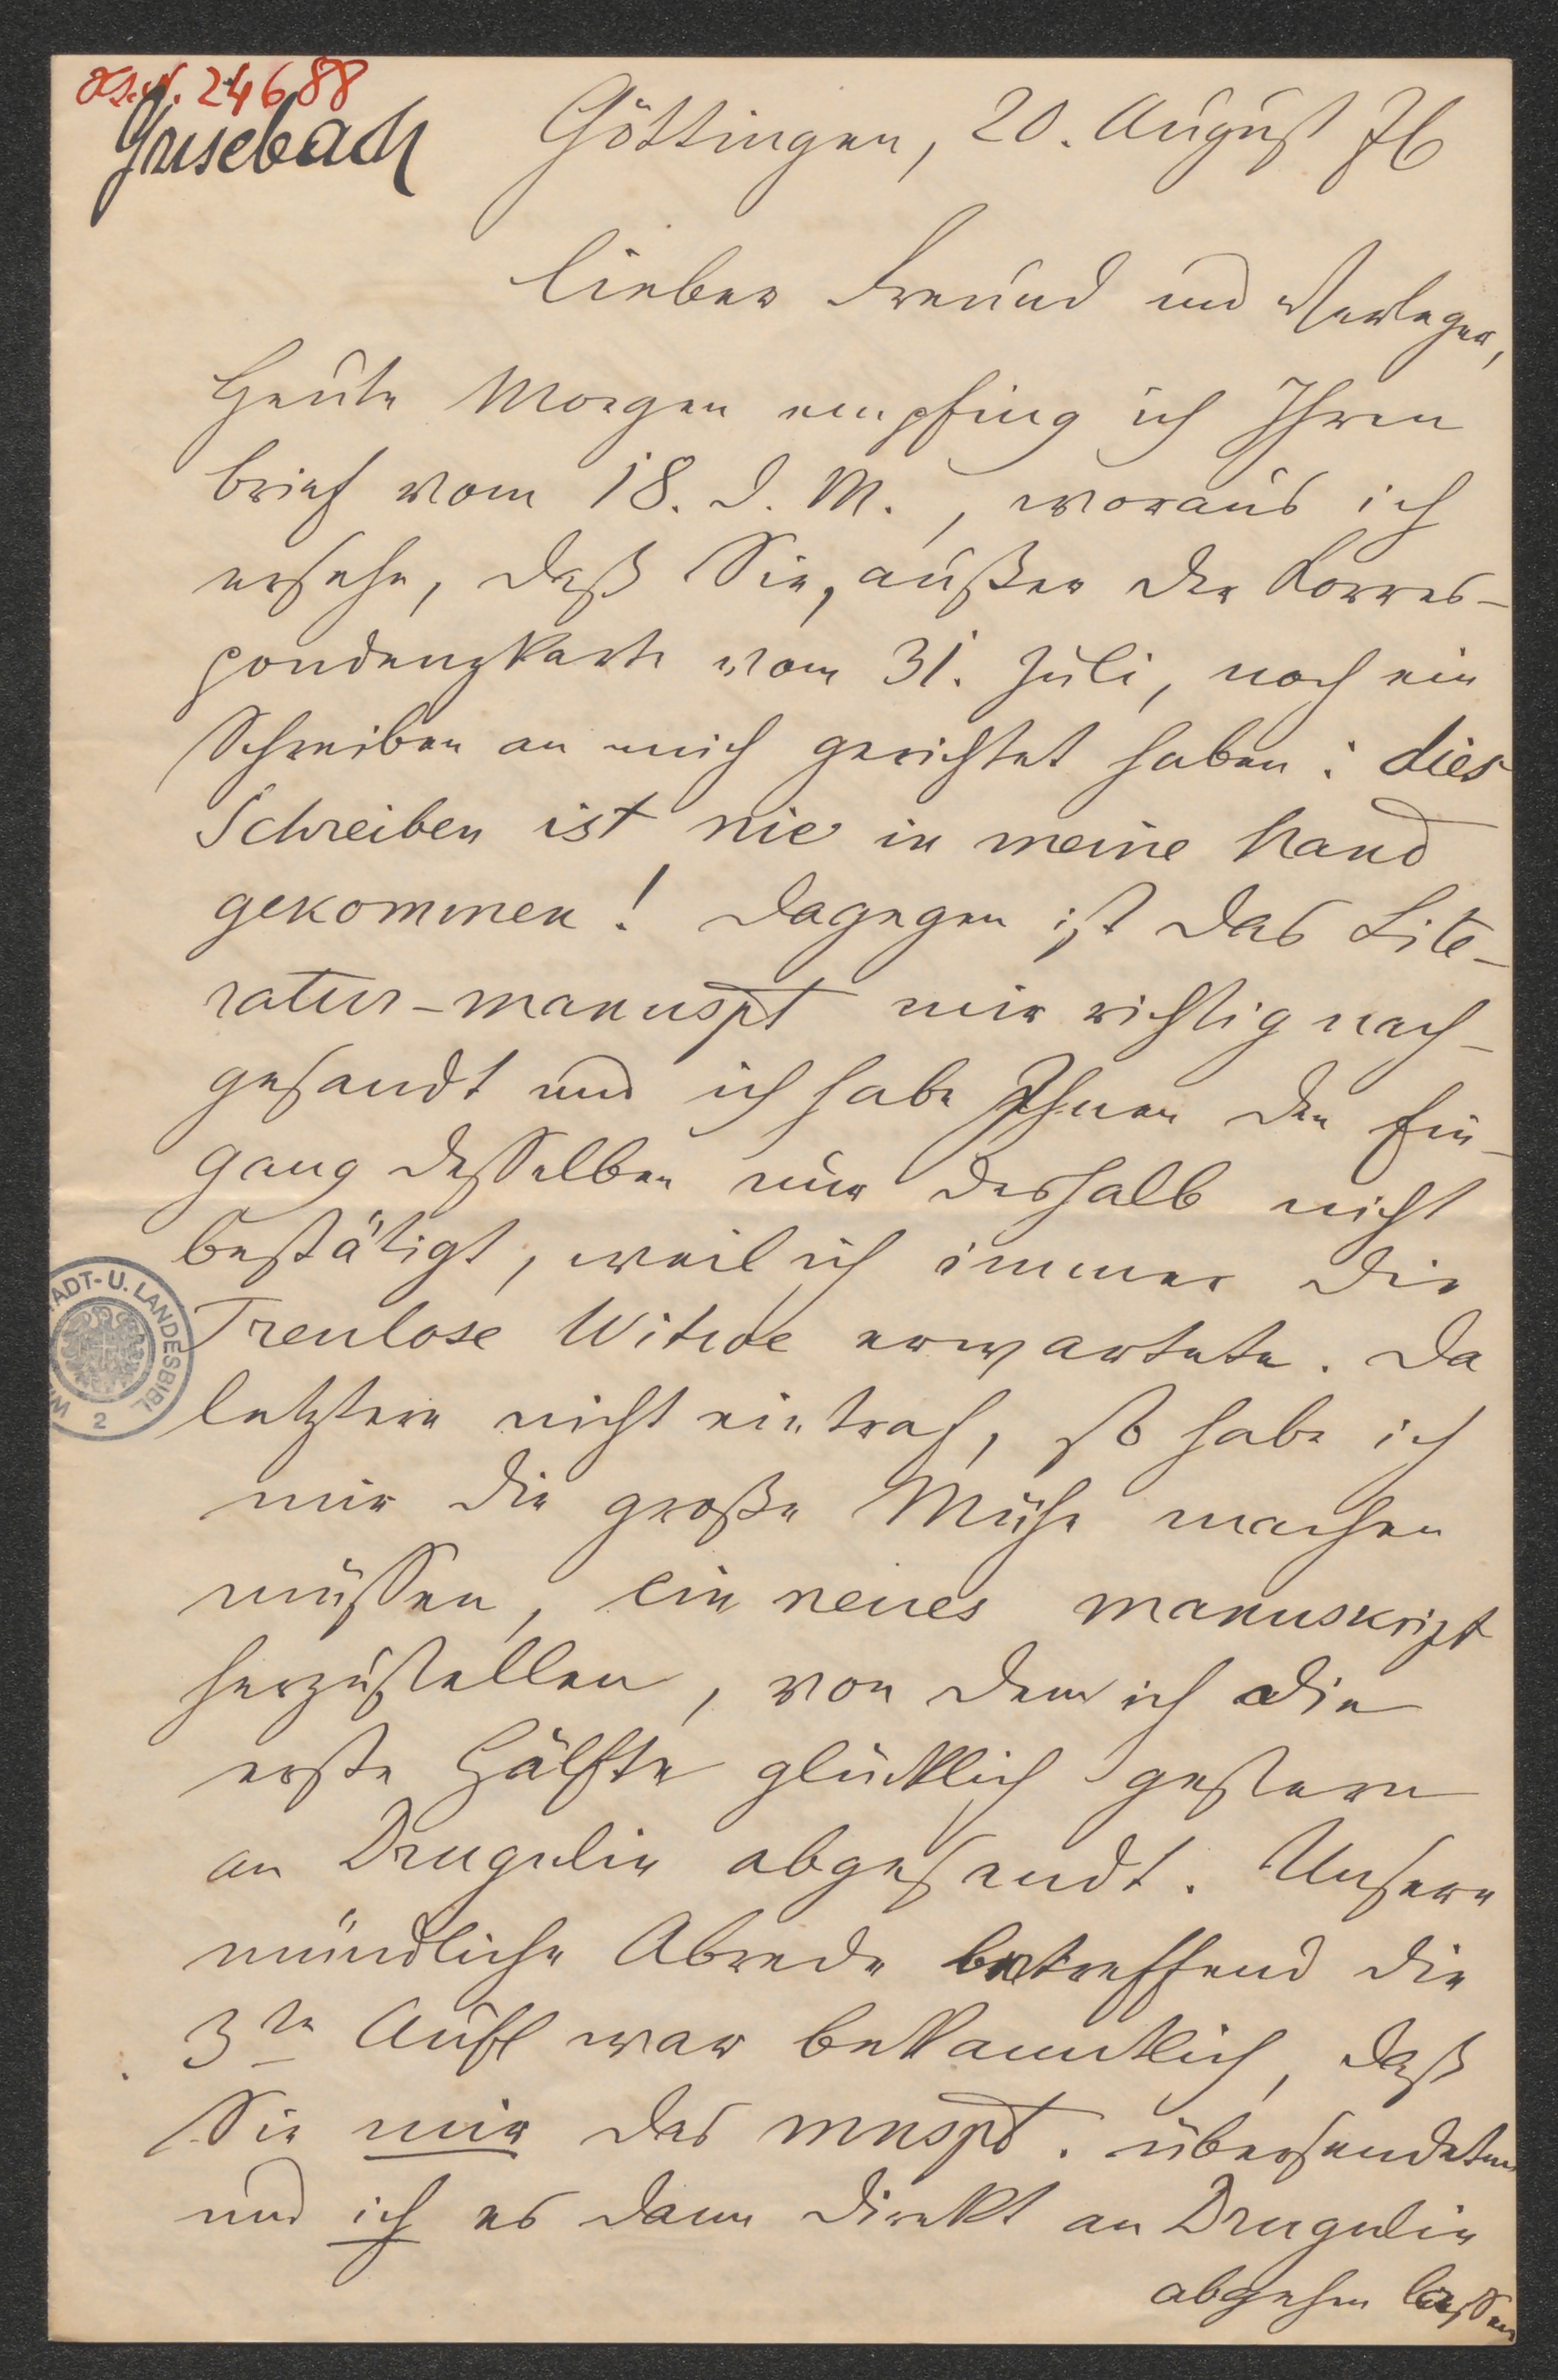 I.N. 24688
Grisebach
Göttingen, 20. August 76
Lieber Freund und Verleger,
Heute Morgen empfing ich Ihren
Brief vom 18. d. M., woraus ich
ersehe, daß Sie, außer der Korres-
pondenzkarte vom 31. Juli, noch ein
Schreiben an mich gerichtet haben: dies
Schreiben ist nie in meine Hand
gekommen! Dagegen ist das Lite-
ratur-manuspt mir richtig nach-
gesandt und ich habe Ihnen den Ein-
gang desselben nur deshalb nicht
bestätigt, weil ich immer die
Treulose Witwe erwartete. Da
letztere nicht eintraf, so habe ich
mir die große Mühe machen
müssen, ein neues manuskript
herzustellen, von dem ich die
erste Hälfte glücklich gestern
an Drugulin abgesandt. Unsere
mündliche Abrede betreffend die
3te Aufl war bekanntlich, daß
Sie mir das mnspt. übersendeten
und ich es dann direkt an Drugulin
abgehen lassen
ADT- U. LANDESBIBL
WI
2